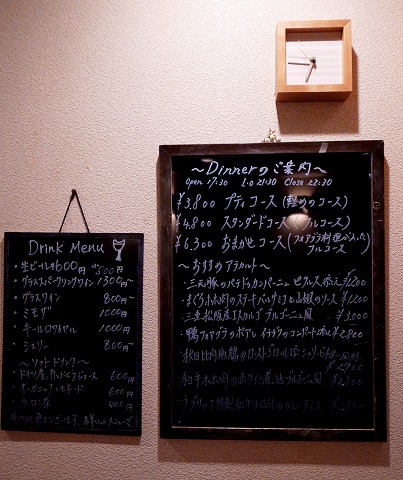 Drink Menu
・生ビール600円 500円
・グラススパークリングワイン 1300円~
・グラスワイン 800円~
・ミモザ 1000円
・キールロワイヤル 1000円
・シェリー 800円~
~ソフトドリンク~
・ドイツ産 ぶどうジュース 600円
・オーガニックレモネード 600円
400円
~Dinnerのご案内~
Open 17:30 L.o 21:30 Close 22:30
¥3,800 プティコース(軽めのコース)
¥4,800 スタンダードコース(フルコース)
¥6,300 おまかせコース(フォアグラ料理が入ったフルコース)
~おすすめアラカルト~
・三元豚のパテドカンパーニュ ピクルス添え ¥1,200
・まぐろホホ肉のステーキ バルサミコと山椒のソース ¥1,200
・三重松阪産エスカルゴ ブルゴーニュ風 ¥3,000
・鴨フォアグラのポアレ イチヂクのコンポート添え ¥2,800
・秋田比内地鶏のロースト
・和牛ホホ肉の赤ワイン煮込 ブルゴーニュ風